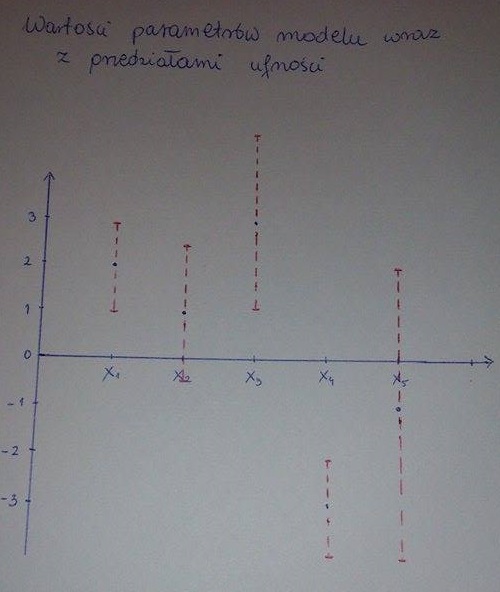 Wartości parametrów modelu wraz
z przedziałami ufności
3
2
1
0
-1
-2
-3
X1 X2 X3 X4 X5